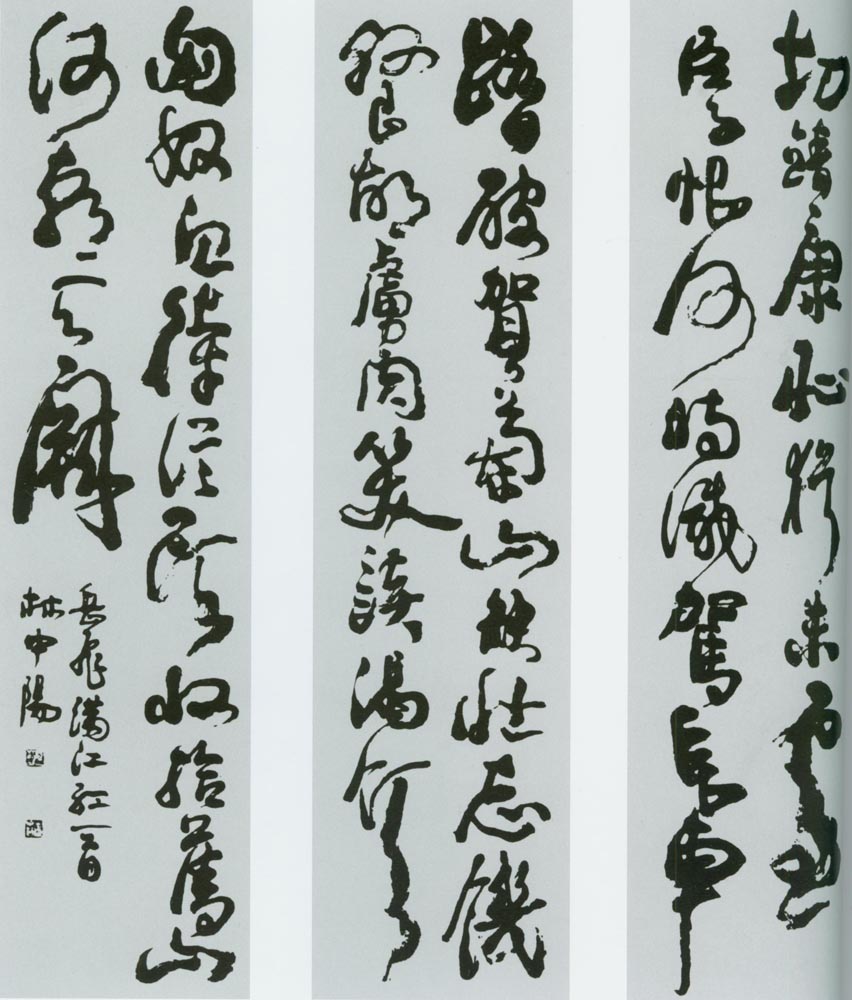 切靖康恥猶未雪
臣子恨何時滅駕長車
踏破賀蘭山缺壯志饑
餐胡虜肉笑談渴飲
匈奴血待從頭收拾舊山
河朝天闕
岳飛滿江紅一首
林中陽